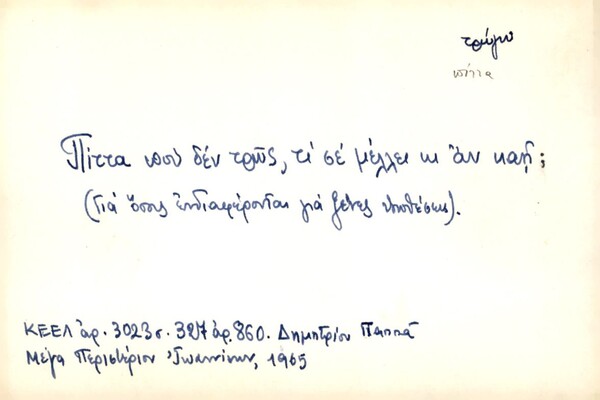 τρώγω
πίττα
Πίττα ποὺ δέν τρῶς, τί σέ μέλλει κι ἂν καῇ;
(Γιά ὅσους ἐνδιαφέρονται γιά ξένες ὑποθέσεις).
ΚΕΕΛ ἀρ. 3023 σ. 327 ἀρ. 860. Δημητρίου Παππᾶ
Μέγα Περιστέριον Ἰωαννίνων, 1965